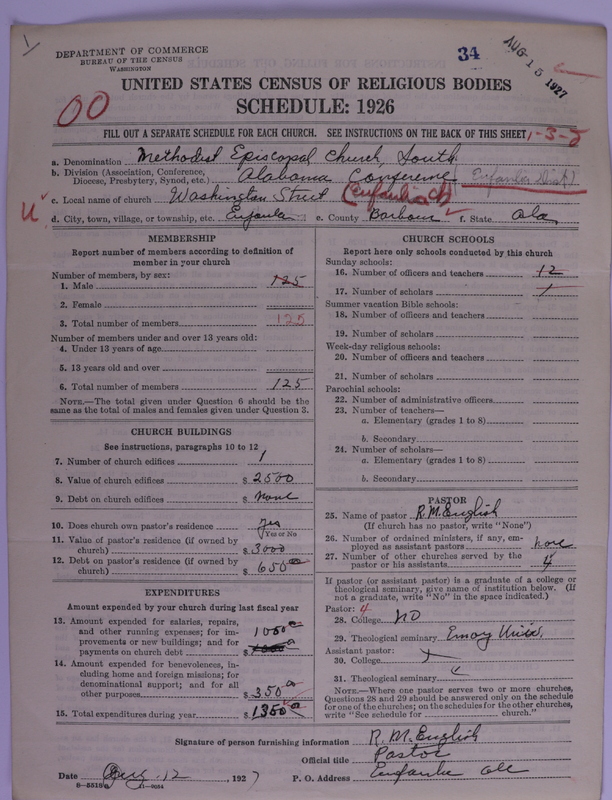 DEPARTMENT OF COMMERCE
BUREAU OF THE CENSUS
WASHINGTON
34
AUG 15 1927
UNITED STATES CENSUS OF RELIGIOUS BODIES
SCHEDULE: 1926
00
FILL OUT A SEPARATE SCHEDULE FOR EACH CHURCH. SEE INSTRUCTIONS ON THE BACK OF THIS SHEET
1-3-5
a. Denomination Methodist Episcopal Church, South
b. Division (Association, Conference, Diocese, Presbytery, Synod, etc.) Alabama Conference Eufaula Dist
c. Local name of church Washington Street
d. City, town, village, or township, etc. Eufaula e. County Barbour f. State Ala
MEMBERSHIP
Report number of members according to definition of
member in your church
Number of members, by sex:
1. Male 125
2. Female
3. Total number of members 125
Number of members under and over 13 years old:
4. Under 13 years of age
5. 13 years old and over
6. Total number of members 125
NOTE.—The total given under Question 6 should be
same as the total of males and females given under Question 3.
CHURCH BUILDINGS
See instructions, paragraphs 10 to 12
7. Number of church edifices 1
8. Value of church edifices $ 2500
9. Debt on church edifices $ None
10. Does church own pastor's residence yes
Yes or No
11. Value of pastor's residence (if owned by
church) $ 3000
12. Debt on pastor's residence (if owned by
church) $ 650 00
EXPENDITURES
Amount expended by your church during last fiscal year
13. Amount expended for salaries, repairs,
and other running expenses; for im-
provements or new buildings; and for
payments on church debt $ 1000 00
14. Amount expended for benevolences, in-
cluding home and foreign missions; for
denominational support; and for all
other purposes $ 350 00
15. Total expenditures during year $ 1350 00
CHURCH SCHOOLS
Report here only schools conducted by this church
Sunday schools:
16. Number of officers and teachers 12
17. Number of scholars
Summer vacation Bible schools:
18. Number of officers and teachers
19. Number of scholars
Week-day religious schools:
20. Number of officers and teachers
21. Number of scholars
Parochial schools:
22. Number of administrative officers
23. Number of teachers—
a. Elementary (grades 1 to 8)
b. Secondary
24. Number of scholars—
a. Elementary (grades 1 to 8)
b. Secondary
PASTOR
25. Name of pastor R. M. English
(If church has no pastor, write "None")
26. Number of ordained ministers, if any, em-
ployed as assistant pastors none
27. Number of other churches served by the
pastor or his assistants 4
If pastor (or assistant pastor) is a graduate of a college or
theological seminary, give name of institution below. (If
not a graduate, write "No" in the space indicated.)
Pastor: 4
28. College No
29. Theological seminary Emory Univ.
Assistant pastor:
30. College
31. Theological seminary
NOTE.—Where one pastor serves two or more churches,
Questions 28 and 29 should be answered only on the schedule
for one of the churches; on the schedules for the other churches,
write "See schedule for church."
Signature of person furnishing information R. M. English
Official title Pastor
Date Aug. 12, 1927 P. O. Address Eufaula Ala